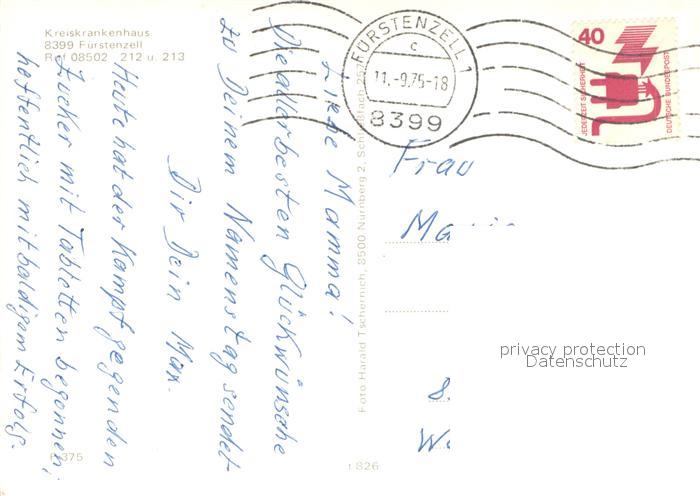 Kreiskrankenhaus
8399 Fürstenzell
Ruf 08502 212 u. 213
Liebe Mamma!
Die allerbesten Glückwünsche
zu Deinem Namenstag sendet
Dir Dein Max.
Heute hat der Kampf gegen den
Zucker mit Tabletten begonnen;
hoffentlich mit baldigem Erfolg.
Foto Harald Tschernich, 8500 Nürnberg 2, Schließfach
FÜRSTENZELL 1
c
11.-9.75-18
8399
40
JEDERZEIT SICHERHEIT
DEUTSCHE BUNDESPOST
Frau
Ma
8.
W.
privacy protection
Datenschutz
375
1826